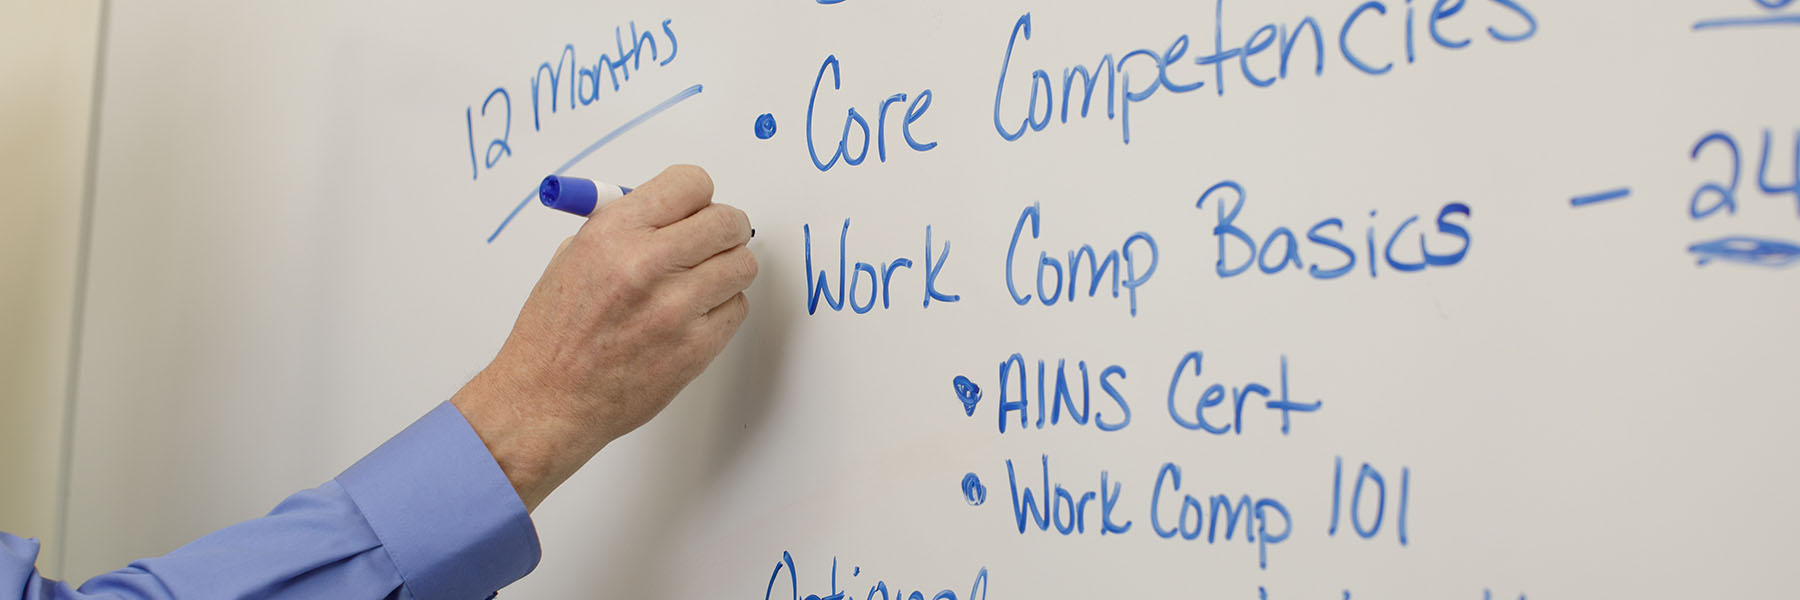 12 Months
• Core Competencies
Work Comp Basics - 24
• AINS Cert
• Work Comp 101
Optional